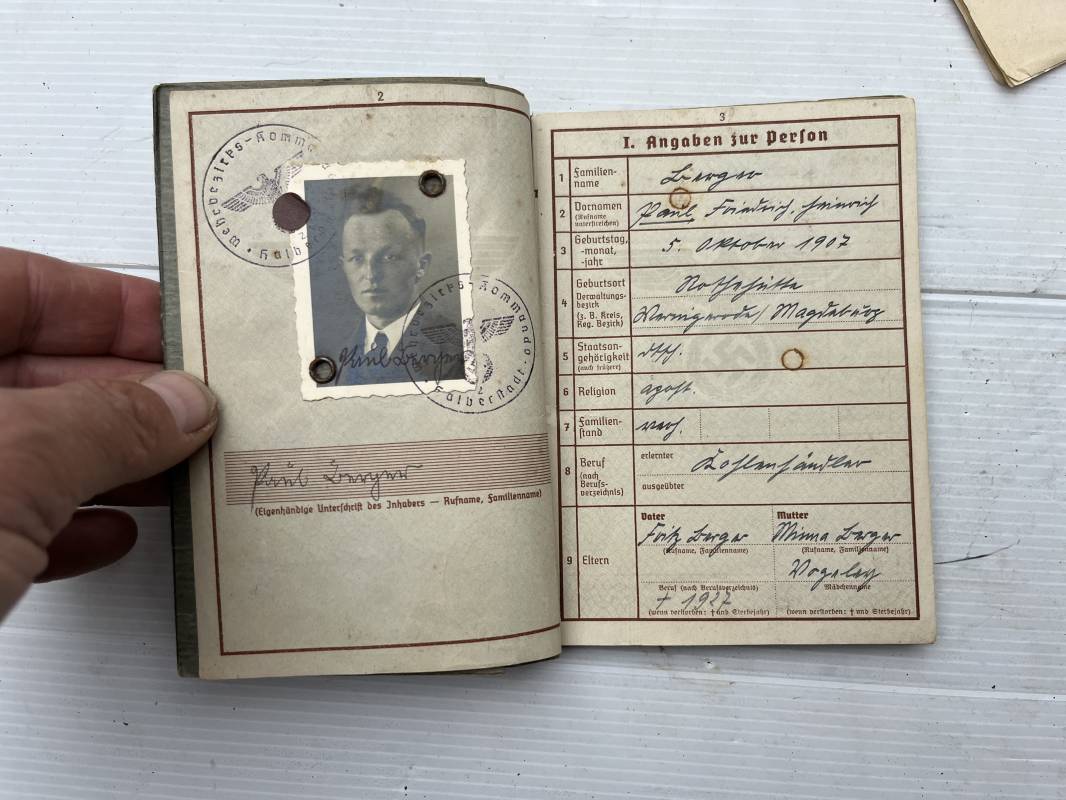 2
Wehrbezirks-Komma
Halb
Wehrbezirks-Kommando
Halberstadt
2
Paul Berger
Paul Berger
(Eigenhändige Unterschrift des Inhabers — Rufname, Familienname)
3
I. Angaben zur Person
1 Familien-
name
Berger
2 Vornamen
(Rufname
unterstreichen)
Paul Friedrich, Heinrich
3 Geburtstag,
-monat,
-jahr
5. Oktober 1907
4 Geburtsort
Verwaltungs-
bezirk
(z. B. Kreis,
Reg. Bezirk)
Rothehütte
Wernigerode/Magdeburg
5 Staatsan-
gehörigkeit
(auch frühere)
dtsch.
6 Religion
7 Familien-
stand
verh.
8 Beruf
(nach
Berufs-
verzeichnis)
erlernter
Kohlenhändler
ausgeübter
9 Eltern
Vater
Fritz Berger
(Rufname, Familienname)
Beruf (nach Berufsverzeichnis)
† 1927
(wenn verstorben: † und Sterbejahr)
Mutter
Minna Berger
(Rufname, Familienname)
Vogeley
Mädchenname
(wenn verstorben: † und Sterbejahr)